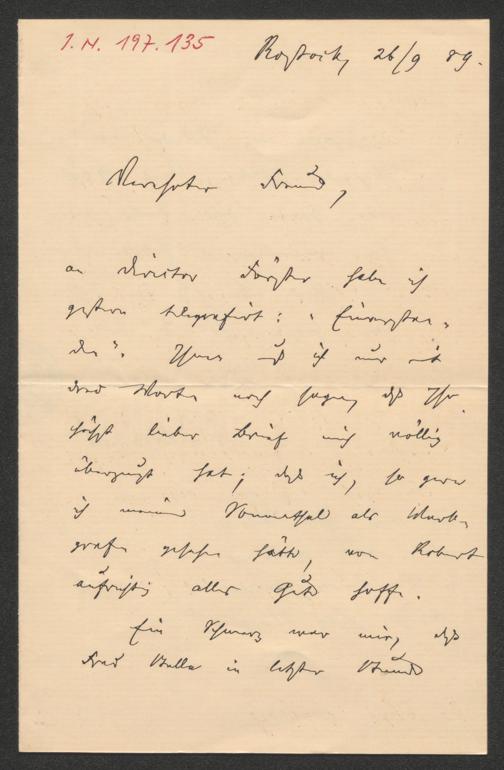 I.N. 197.135
Rostock, 26/9 89.
Verehrter Freund,
an Director Förster habe ich
gestern telegrafirt: „Einverstan-
den“. Ihnen muß ich nur mit
drei Worten noch sagen, daß Ihr
höchst lieber Brief mich völlig
überzeugt hat; daß ich, so gern
ich meinen Sonnenthal als Mark-
grafen gesehen hätte, von Robert
aufrichtig alles Gute hoffe.
Ein Schmerz war mir, daß
Frau Wolter in letzter Stunde